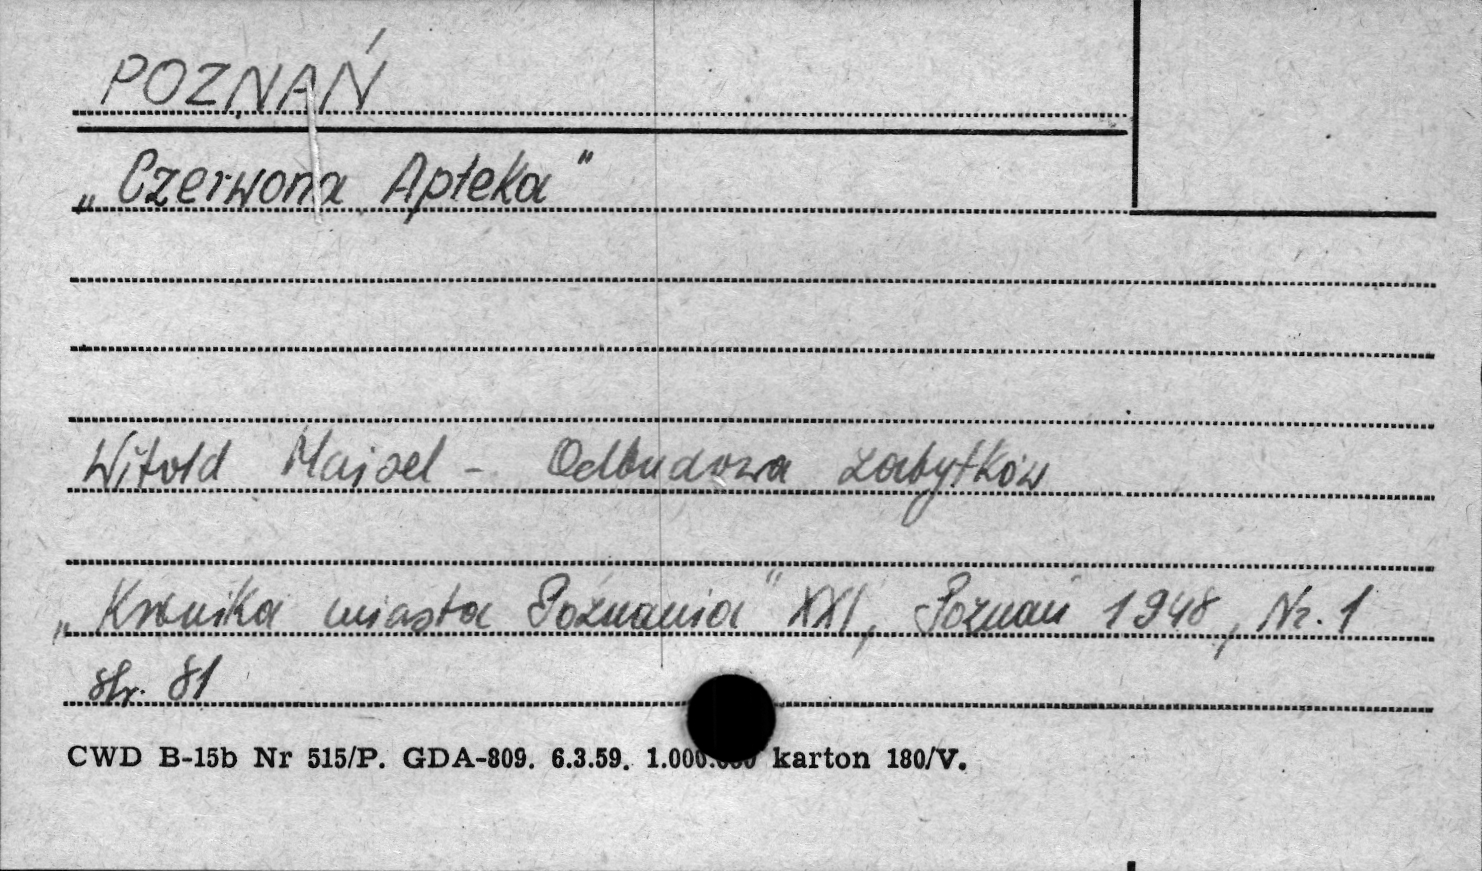 POZNAŃ
„Czerwona Apteka"
Witold Maisel - Odbudowa zabytków
„Kronika miasta Poznania" XXI, Poznań 1948, Nr. 1
str. 81
CWD B-15b Nr 515/P. GDA-809. 6.3.59. 1.000.000 karton 180/V.